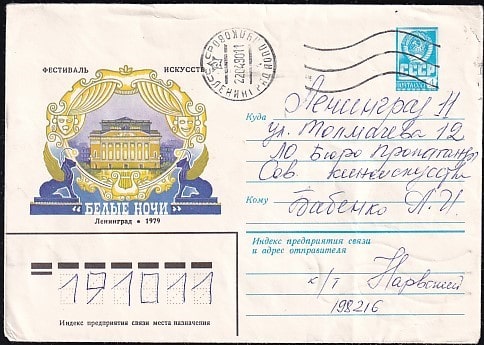 ФЕСТИВАЛЬ ИСКУССТВ
"БЕЛЫЕ НОЧИ"
Ленинград • 1979
22048011
СССР
Куда Ленинград 11
ул. Толмачева 12
ЛО Бюро Пропаганды
Сов. киноискусства
Кому Бабенко А.И.
Индекс предприятия связи
и адрес отправителя
к/т Нарвский
198216
191011
Индекс предприятия связи места назначения